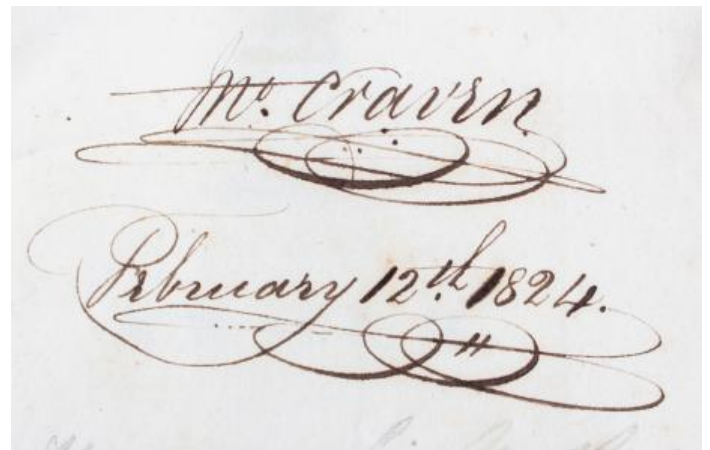 Mc. Craven.
February 12th. 1824.
"